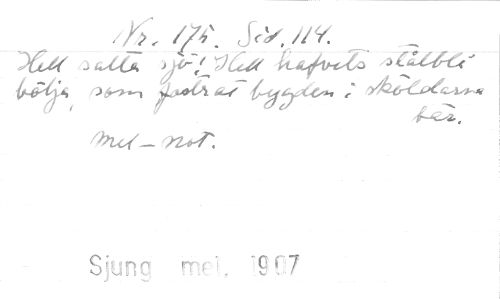 Nr. 175. Sid. 114.
Hell salta sjö! Hell hafvets stålblå
bölja, som fostrat bygden i sköldarna
bär.
Mel-not.
Sjung mel. 1907